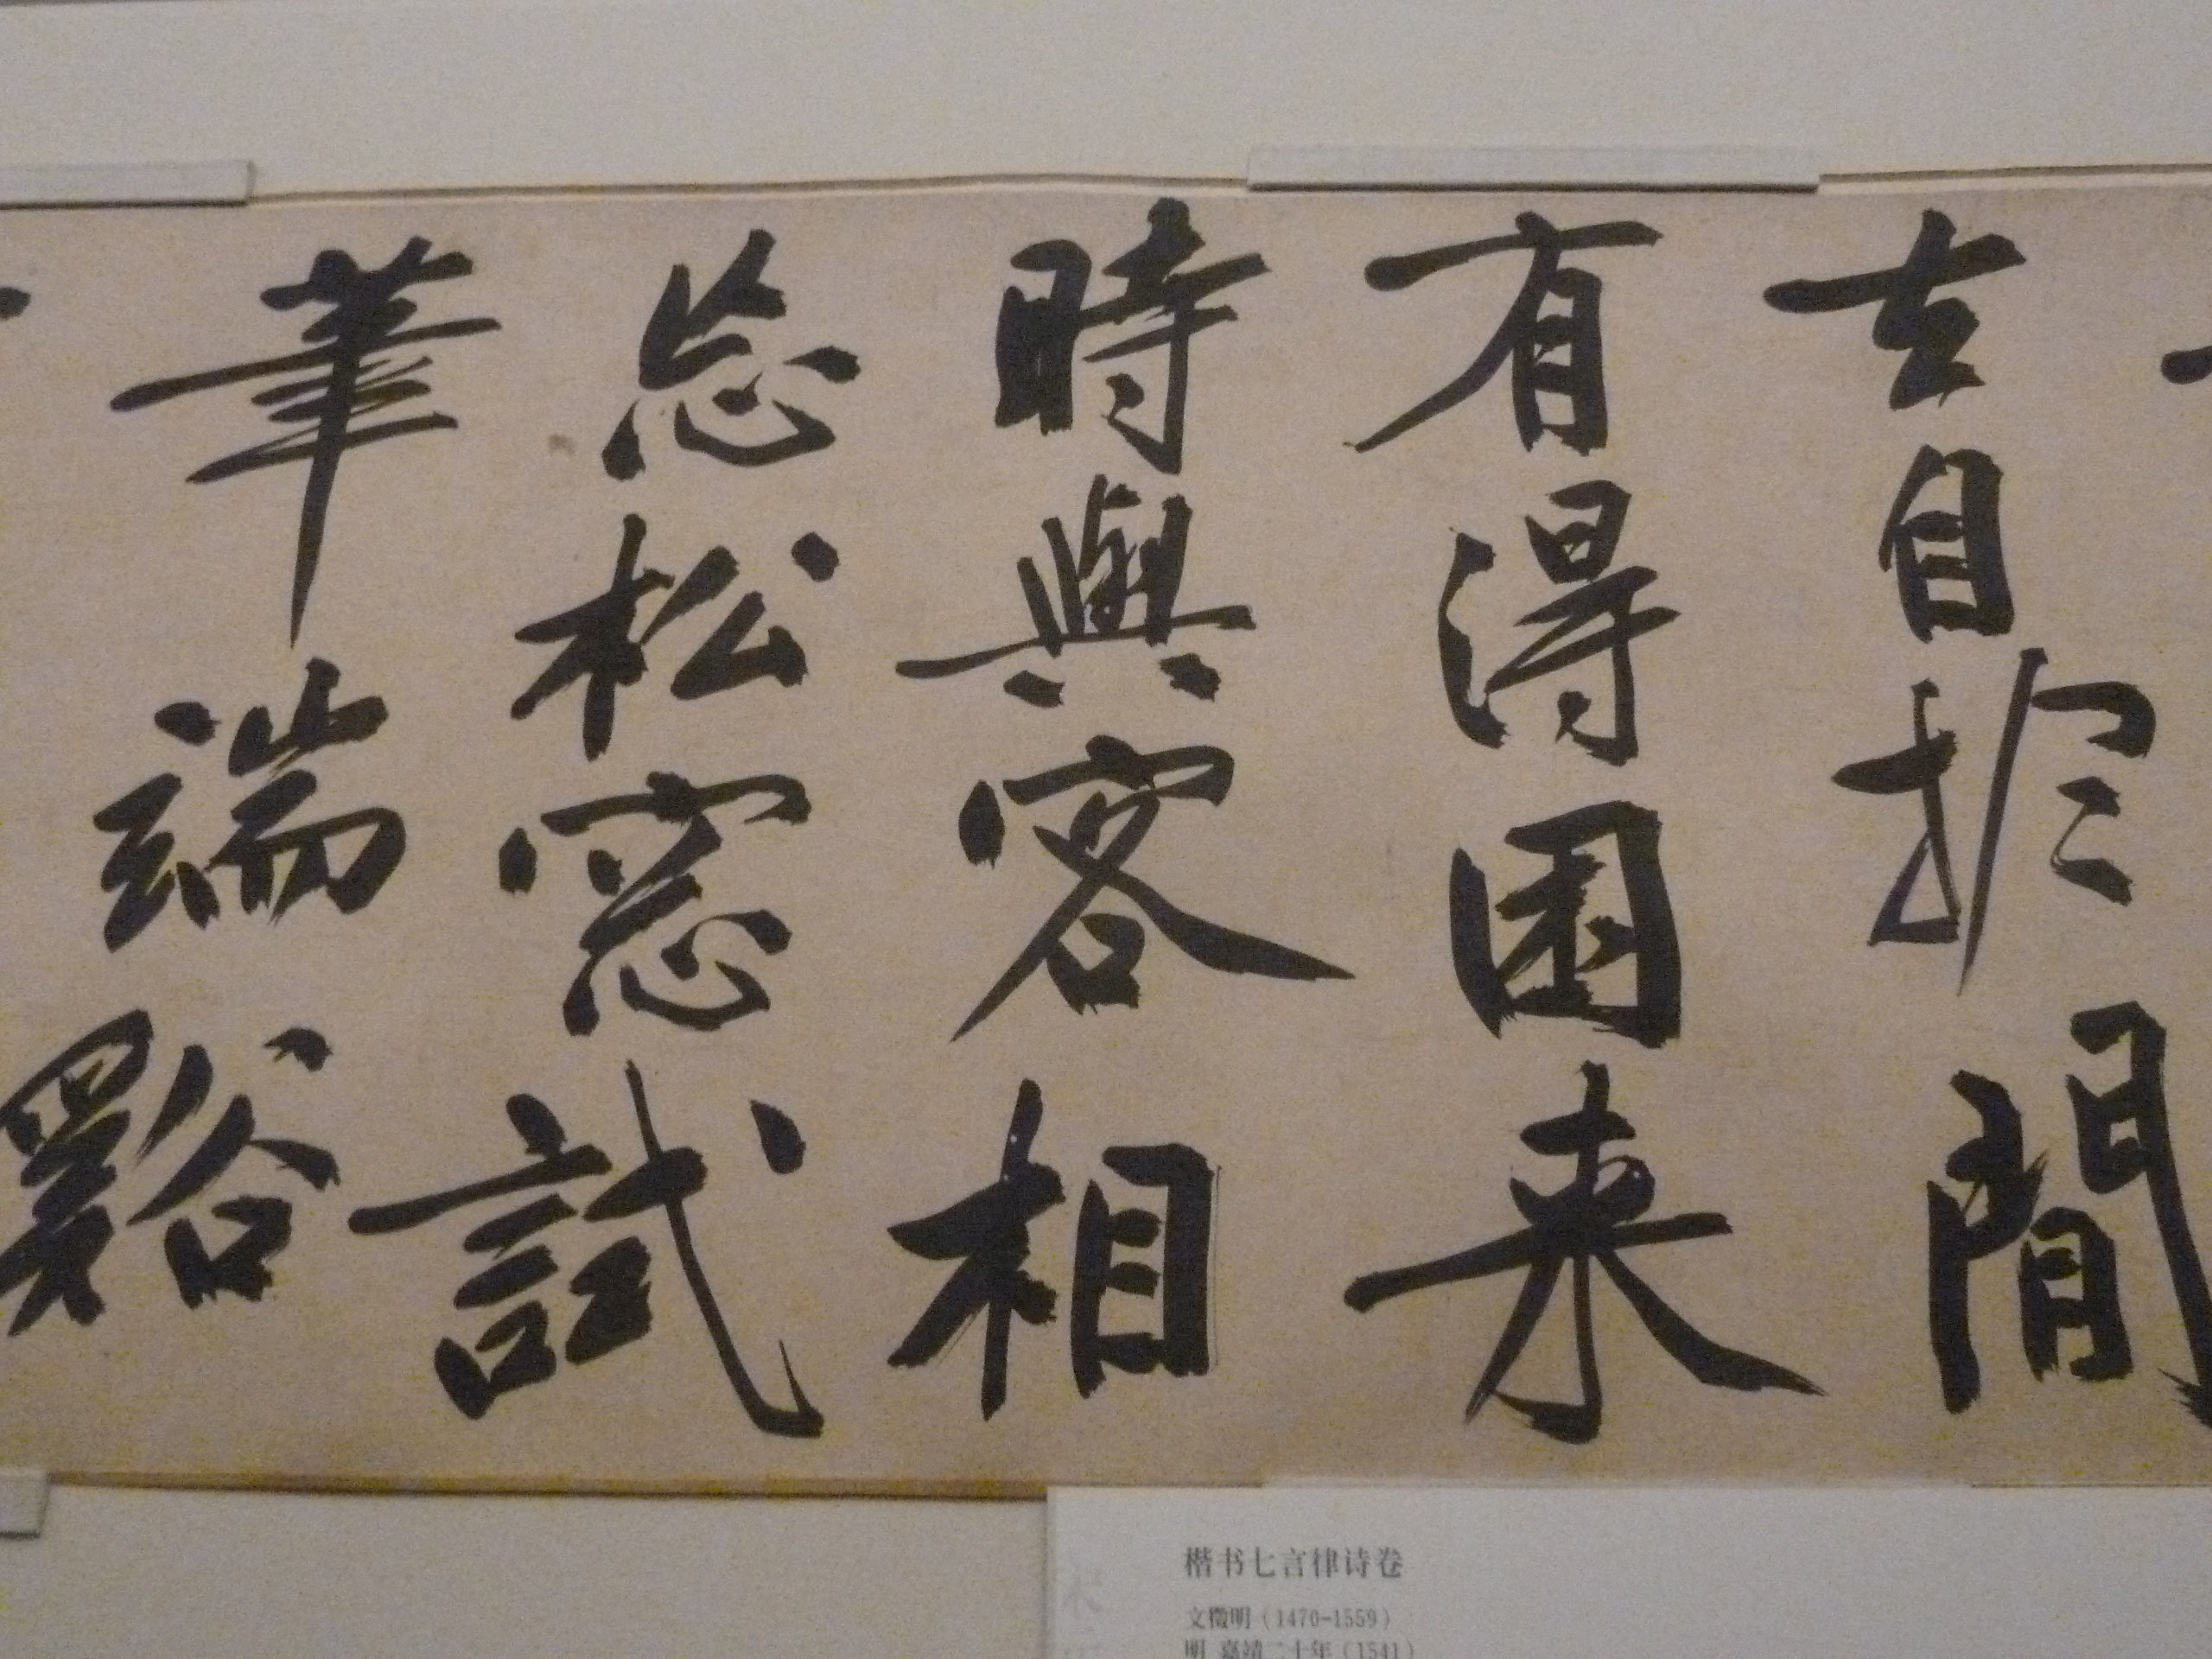 去自於閒
有得困来
時與客相
忘松窓試
筆端谿
楷书七言律诗卷
文徵明（1470-1559）
明 嘉靖二十年（1541）